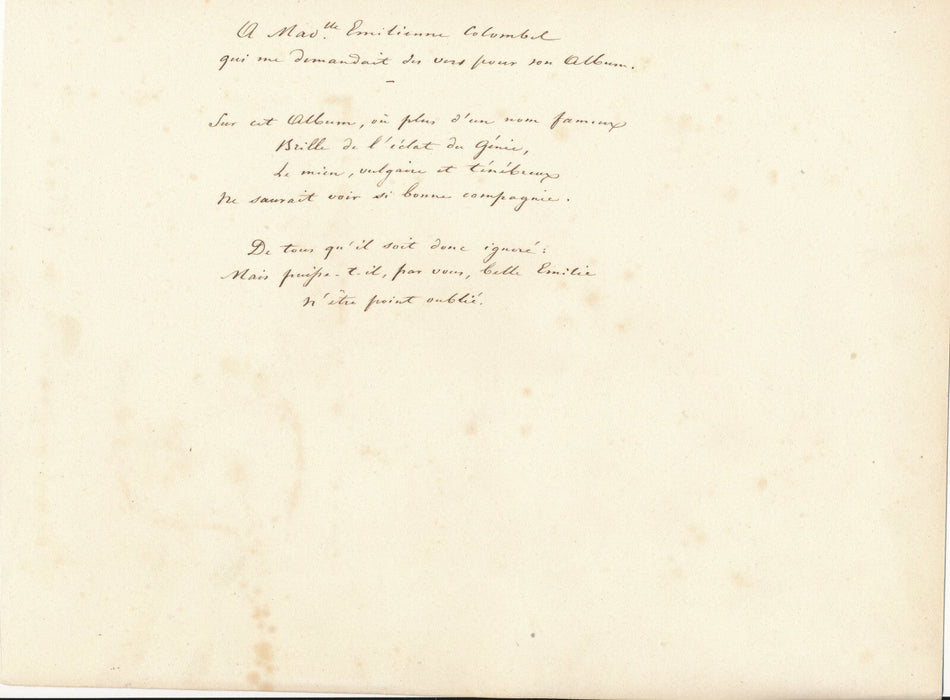 A Mad.lle Emilienne Colombel
qui me demandait des vers pour son Album.
Sur cet Album, où plus d'un nom fameux
Brille de l'éclat du Génie,
Le mien, vulgaire et ténébreux
Ne saurait voir si bonne compagnie.
De tous qu'il soit donc ignoré :
Mais puisse-t-il, par vous, belle Emilie
N'être point oublié.